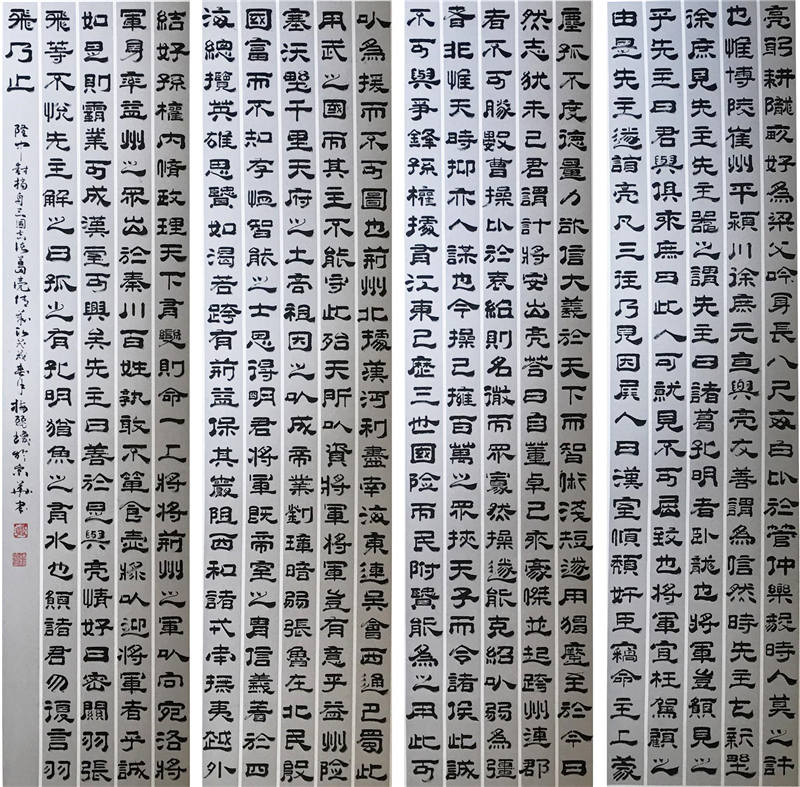 亮躬耕隴畝好為梁父吟身長八尺每自比於管仲樂毅時人莫之許
也惟博陵崔州平潁川徐庶元直與亮友善謂為信然時先主屯新野
徐庶見先主先主器之謂先主曰諸葛孔明者臥龍也將軍豈願見之
乎先主曰君與俱來庶曰此人可就見不可屈致也將軍宜枉駕顧之
由是先主遂詣亮凡三往乃見因屏人曰漢室傾頹奸臣竊命主上蒙
塵孤不度德量力欲信大義於天下而智術淺短遂用猖蹷至於今日
然志猶未已君謂計將安出亮答曰自董卓已來豪傑並起跨州連郡
者不可勝數曹操比於袁紹則名微而眾寡然操遂能克紹以弱為彊
者非惟天時抑亦人謀也今操已擁百萬之眾挾天子而令諸侯此誠
不可與爭鋒孫權據有江東已歷三世國險而民附賢能為之用此可
以為援而不可圖也荊州北據漢沔利盡南海東連吳會西通巴蜀此
用武之國而其主不能守此殆天所以資將軍將軍豈有意乎益州險
塞沃野千里天府之土高祖因之以成帝業劉璋暗弱張魯在北民殷
國富而不知存恤智能之士思得明君將軍既帝室之胄信義著於四
海總攬英雄思賢如渴若跨有荊益保其巖阻西和諸戎南撫夷越外
結好孫權內脩政理天下有變則命一上將將荊州之軍以向宛洛將
軍身率益州之眾出於秦川百姓孰敢不簞食壺漿以迎將軍者乎誠
如是則霸業可成漢室可興矣先主曰善於是與亮情好日密關羽張
飛等不悅先主解之曰孤之有孔明猶魚之有水也願諸君勿復言羽
飛乃止
隆中對摘自三國志諸葛亮傳